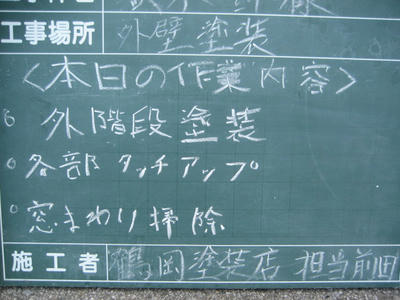 工事場所 外壁塗装
＜本日の作業内容＞
○ 外階段塗装
○ 各部タッチアップ
○ 窓まわり掃除
施工者 鶴岡塗装店 担当前田